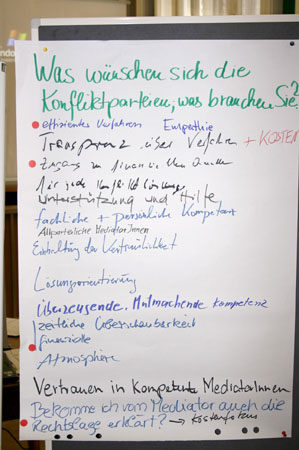 Was wünschen sich die
Konfliktparteien, was brauchen Sie?
effizientes Verfahren Empathie
Transparenz über Verfahren + KOSTEN
Zugang zu finanziellen
Für jede
Unterstützung und Hilfe
fachliche + persönliche Kompetenz
Allparteiliche MediatorInnen
Einhaltung der Vertraulichkeit
Lösungsorientierung
Überzeugende, Mutmachende Kompetenz
zeitliche Überschaubarkeit
finanzielle
Atmosphäre
Vertrauen in kompetente MediatorInnen
Bekomme ich vom Mediator auch die
Rechtslage erklärt? →